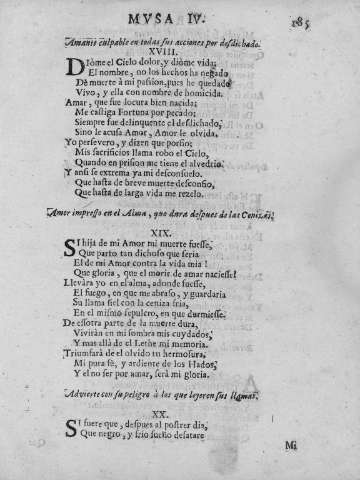 MVSA IV. 185
Amante culpable en todas sus acciones por desdichado.
XVIII.
DIòme el Cielo dolor, y diòme vida;
El nombre, no los hechos ha negado
De muerte à mi passion, pues he quedado
Vivo, y ella con nombre de homicida.
Amar, que fue locura bien nacida;
Me castiga Fortuna por pecado;
Siempre fue delinquente el desdichado,
Sino le acusa Amor, Amor le olvida.
Yo persevero, y dizen que porfio;
Mis sacrificios llama robo el Cielo,
Quando en prision me tiene el alvedrio.
Y ansi se extrema ya mi desconsuelo.
Que hasta de breve muerte desconfio,
Que hasta de larga vida me rezelo.
Amor impresso en el Alma, que dura despues de las Cenizas.
XIX.
SI hija de mi Amor mi muerte fuesse,
Que parto tan dichoso que seria
El de mi Amor contra la vida mia!
Que gloria, que el morir de amar naciesse!
Llevàra yo en el alma, adonde fuesse,
El fuego, en que me abraso, y guardaria
Su llama fiel con la ceniza fria,
En el mismo sepulcro, en que durmiesse.
De essotra parte de la muerte dura,
Vivirán en mi sombra mis cuydados,
Y mas allà de el Lethe mi memoria.
Triumfarà de el olvido tu hermosura,
Mi pura fè, y ardiente de los Hados,
Y el no ser por amar, serà mi gloria.
Advierte con su peligro à los que leyeren sus llamas.
XX.
SI fuere que, despues al postrer dia,
Que negro, y frio sueño desatare
Mi